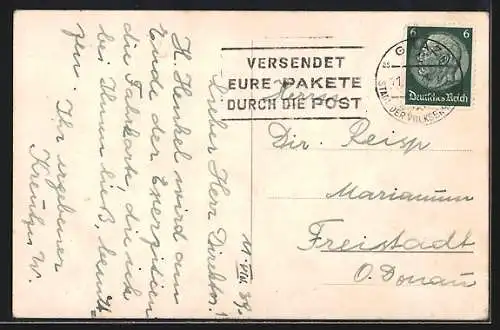 VERSENDET
EURE PAKETE
DURCH DIE POST
GRAZ
STADT DER VOLKSER
6 6
Deutsches Reich
Herrn
Dir. Reisp
Marianum
Freistadt
O. Donau
11. VIII. 39.
Lieber Herr Direktor!
H. Henkel wird am
Ende der Exerzitien
die Fahrkarte, die ich
bei Ihnen ließ, benüt-
zen.
Ihr ergebener
W.